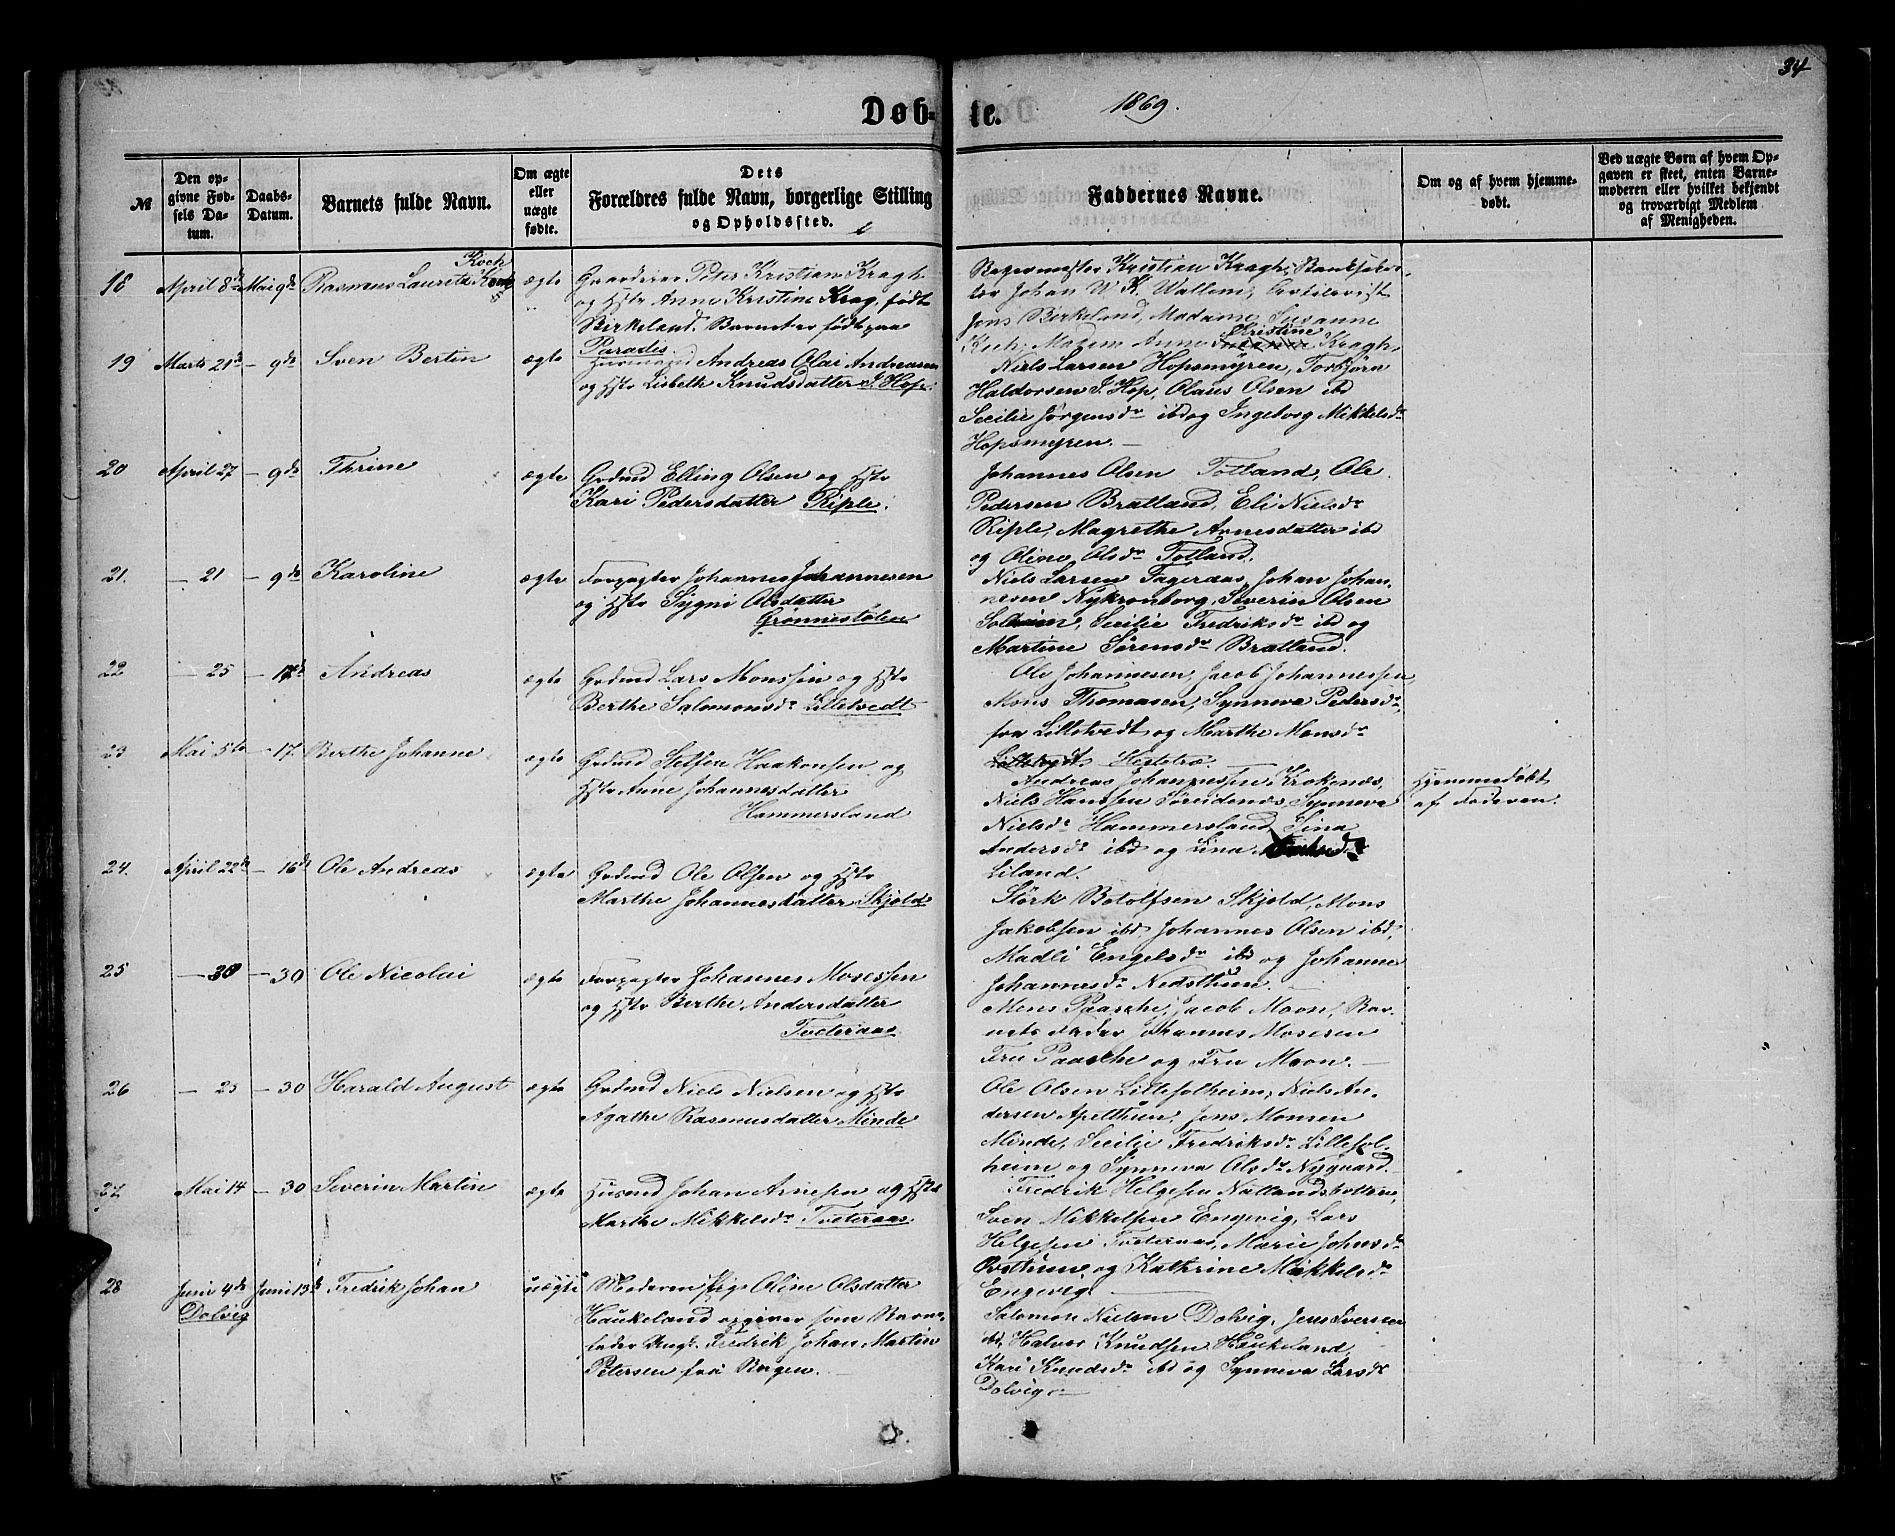 34
Døb-
te.
1869.
№
Den op-
givne Fød-
sels Da-
tum.
Daabs-
Datum.
Barnets fulde Navn.
Om ægte
eller
uægte
fødte.
Dets
Forældres fulde Navn, borgerlige Stilling
og Opholdssted.
Faddernes Navne.
Om og af hvem hjemme-
døbt.
Ved uægte Børn af hvem Op-
gaven er skeet, enten Barne-
moderen eller hvilket bekjendt
og troværdigt Medlem
af Menigheden.
18 April 8de Mai 9de Rasmus Lauritz Koch ægte
Peter Kristian Kragh
og Hstr Anne Kristine Krag, født
Birkeland. Barnet er født paa
Paradis
Kristian Kragh,
Johan W. K. Wallem,
Jens Birkeland, Madame Susanne
Koch, Madem Anne Kristine Kragh,
19 Marts 21de – 9de Sven Bertin ægte
Andreas Olai Andreasen
og Hstr Lisbeth Knudsdatter S. Hop.
Niels Larsen Hopsmyren, Torbjørn
Haldorsen S. Hop, Olaus Olsen ibd
Secilie Jørgensdr ibd og Ingeborg Mikkelsdr
Hopsmyren. –
20 April 27 – 9de Thrine ægte
Grdmd Elling Olsen og Hstr
Kari Pedersdatter Riple.
Johannes Olsen Totland, Ole
Pedersen Bratland, Eli Nielsdr
Riple, Magrethe Arnesdatter ibd
og Oline Olsdr Totland.
21. – 21 – 9de Karoline ægte
Forpagter Johannes Johannesen
og Hstr Sygni Olsdatter
Grønnestølen
Niels Larsen Fageraas, Johan Johan-
nesen Nykronborg, Severin Olsen
Solheim, Secilie Fredriksdr ibd og
Martine Sørensdr Bratland.
22 – 25 – 17de Andreas ægte
Grdmd Lars Monssen og Hstr
Berthe Salomonsdr Lilletvedt
Ole Johannesen, Jacob Johannessen
Mons Thomasen, Synneva Pedersdr,
fra Lilletvedt og Marthe Monsdr
Lilletvedt. Hestetræ. –
23 Mai 5te – 17 Berthe Johanne ægte
Grdmd Steffen Haakonsen og
Hstr Anne Johannesdatter
Hammersland
Andreas Johannessen Krokenæs,
Niels Hanssen Søreidenæs, Synneva
Nielsdr Hammersland, Sina
Andersdr ibd og Lina
Liland.
Hjemmedøbt
af Faderen.
24. April 22de – 16de Ole Andreas ægte
Grdmd Ole Olsen og Hstr
Marthe Johannesdatter Skjold
Størk Botolfsen Skjold, Mons
Jakobsen ibd, Johannes Olsen ibd,
Madli Engelsdr ibd og Johanne
Johannesdr Nedsthun. –
25 – 30 – 30 Ole Nicolai ægte
Forpagter Johannes Mosessen
og Hstr Berthe Andersdatter
Tveteraas
Mens Paasche, Jacob Moon, Bar-
nets Fader Johannes Mosesen
Fru Paasche og Fru Moon. –
26 – 25 – 30 Harald August ægte
Grdmd Niels Nielsen og Hstr
Agathe Rasmusdatter Minde
Ole Olsen Lillesolheim, Niels An-
dersen Apelthun, Jens Monsen
Minde, Secilie Fredriksdr Lillesol-
heim og Synneva Olsdr Nygaard.
27 Mai 14 – 30 Severin Martin ægte
Husmd Johan Arnesen og Hstr
Marthe Mikkelsdr Tveteraas.
Fredrik Helgesen Natlandsbotten,
Sven Mikkelsen Engevig, Lars
Helgesen Tveteraas, Marie Johnsdr
og Kathrine Mikkelsdr
Engevig.
28 Juni 4de Juni 13de Fredrik Johan uægte
Dolvig
Moderen Pige Oline Olsdatter
Haukeland opgiver som Barne-
fader Ungk. Fredrik Johan Martin
Petersen fra Bergen. –
Salomon Nielsen Dolvig, Jens Iversen
ibd, Halvor Knudsen Haukeland,
Kari Knudsdr ibd og Synneva Larsdr
Dolvig. –